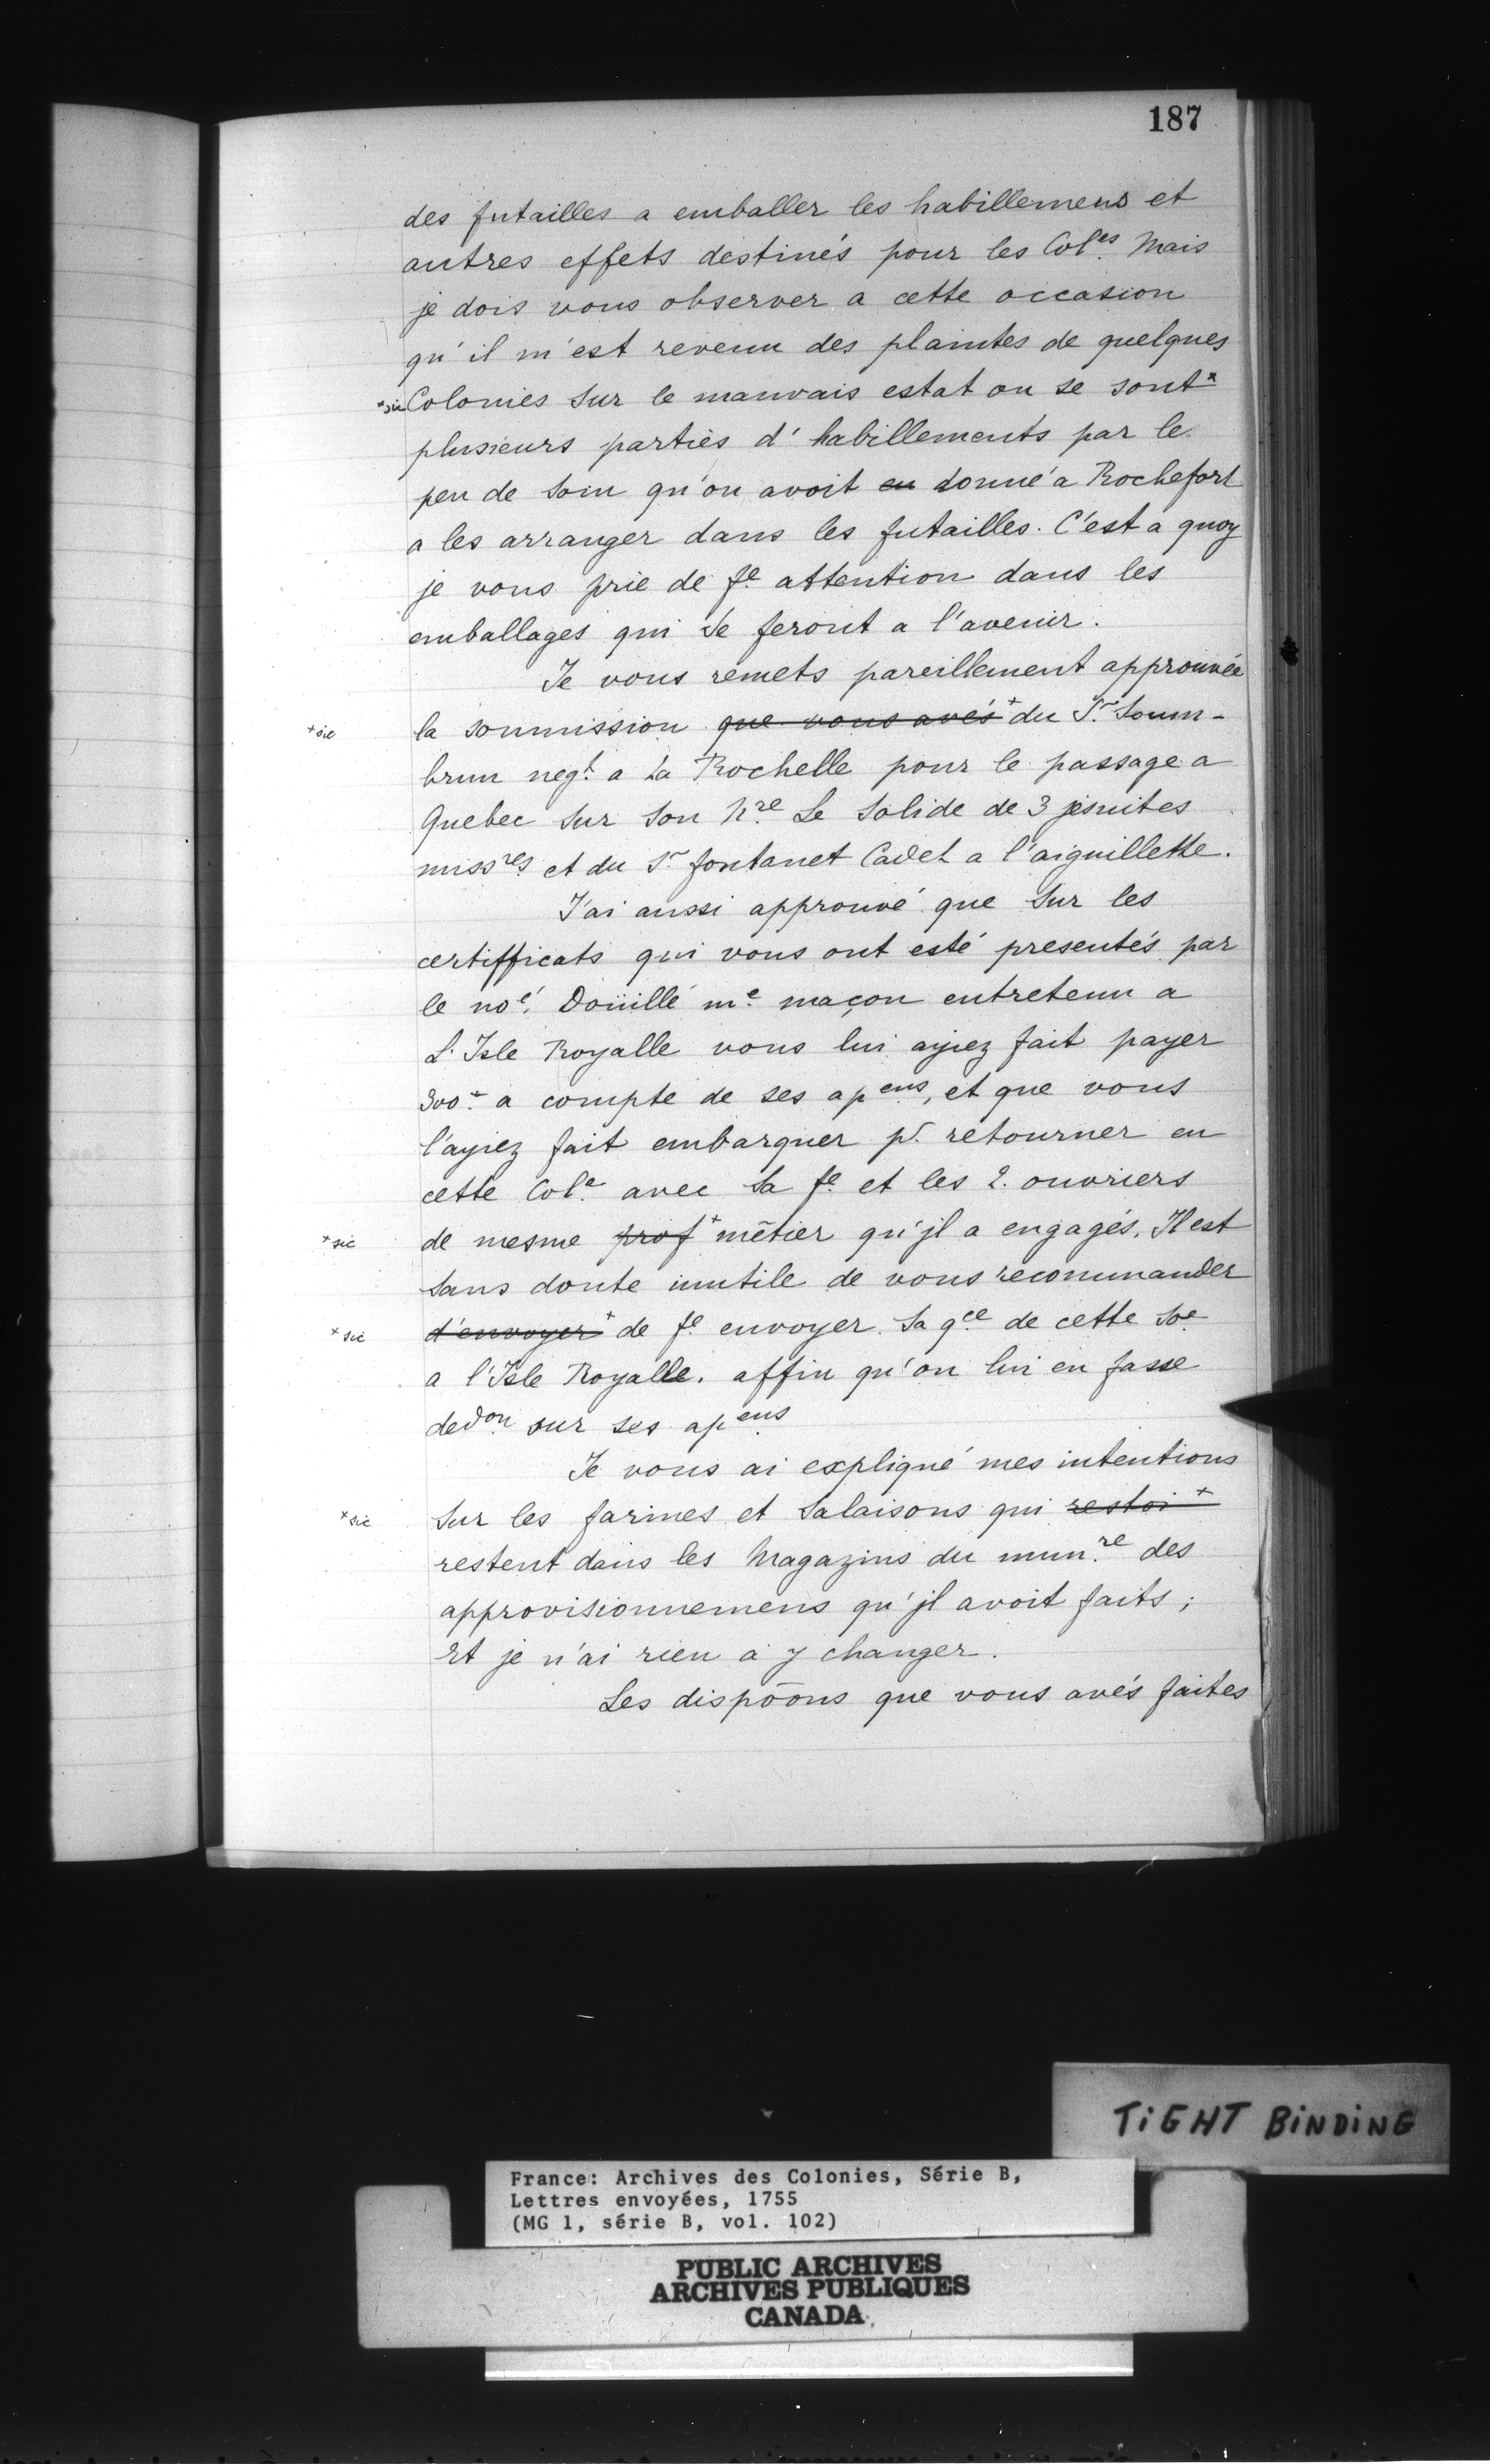 187
des futailles a emballer les habillemens et
autres effets destinés pour les Col.es Mais
je dois vous observer a cette occasion
qu'il m'est revenu des plaintes de quelques
+sic Colonies sur le mauvais estat ou se sont+
plusieurs parties d'habillements par le
peu de soin qu'on avoit ~~eu~~ donné a Rochefort
a les arranger dans les futailles. C'est a quoy
je vous prie de f.e attention dans les
emballages qui se feront a l'avenir.
Je vous remets pareillement approuvée
+sic la soumission ~~que vous avés~~+ du S.r Soum-
brun neg.t a La Rochelle pour le passage a
Quebec sur son N.re Le Solide de 3 jesuites
miss.res et du S.r fontanet Cadet a l'aiguillette.
J'ai aussi approuvé que sur les
certifficats qui vous ont esté presentés par
le no.é Doüillé m.e maçon entretenu a
L'Isle Royalle vous lui ayiez fait payer
300.+ a compte de ses ap.ens, et que vous
l'ayiez fait embarquer p.r retourner en
cette Col.e avec sa f.e et les 2. ouvriers
+sic de mesme ~~prof~~+ métier qu'jl a engagés. Il est
sans doute inutile de vous recommander
+sic ~~d'envoyer~~+ de f.e envoyer sa q.ce de cette so.e
a l'Isle Royalle. affin qu'on lui en fasse
ded.on sur ses ap.ens
Je vous ai expliqué mes intentions
+sic sur les farines et salaisons qui ~~restoi~~+
restent dans les Magazins du mun.re des
approvisionnemens qu'jl avoit faits;
Et je n'ai rien a y changer.
Les dispōons que vous avés faites
TiGHT BiNDiNG
France: Archives des Colonies, Série B,
Lettres envoyées, 1755
(MG 1, série B, vol. 102)
PUBLIC ARCHIVES
ARCHIVES PUBLIQUES
CANADA